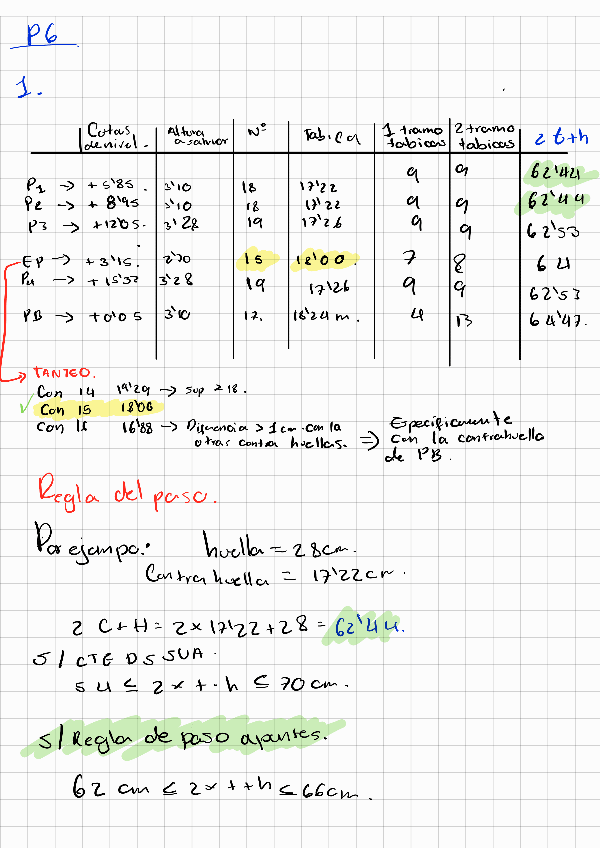 P6
1.
Cotas de nivel. Altura a salvar Nº Tabica 1 tramo tabicas 2 tramo tabicas 2t+h
P1 → +5'85. 3'10 18 17'22 9 9 62'44
P2 → +8'95 3'10 18 17'22 9 9 62'44
P3 → +12'05. 3'28 19 17'26 9 9 62'53
EP → +3'15. 2'70 15 18'00. 7 8 64
P4 → +15'32 3'28 19 17'26 9 9 62'53
PB → +0'05 3'10 17. 18'24 m. 4 13 64'47.
TANTEO.
Con 14 19'29 → sup ≥ 18.
✓ Con 15 18'06
Con 16 16'88 → Diferencia > 1 cm. con la otras contra huellas. ⇒ Especificamente con la contrahuella de PB.
Regla del paso.
Por ejempo: huella = 28cm.
Contrahuella = 17'22cm.
2 C+H = 2x17'22+28 = 62'44.
S/ CTE DS SUA.
54 ≤ 2x t · h ≤ 70 cm.
S/ Regla de paso apantes.
62 cm ≤ 2x t +h ≤ 66cm.